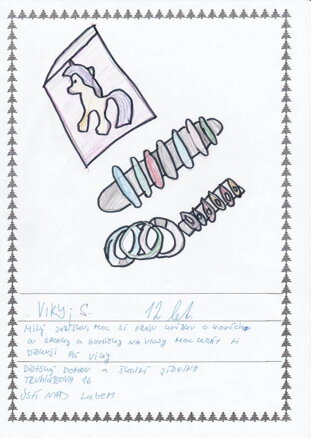 VIKY, S. 12 let
MILÝ JEŽÍŠKU, MOC SI PŘEJU KNÍŽKU O KONÍCH
A SPONKY A GUMIČKY NA VLASY MOCKRÁT TI
DĚKUJI PÁ VIKY
DĚTSKÝ DOMOV A ŠKOLNÍ JÍDELNA
TRUHLÁŘOVA 16
ÚSTÍ NAD LABEM